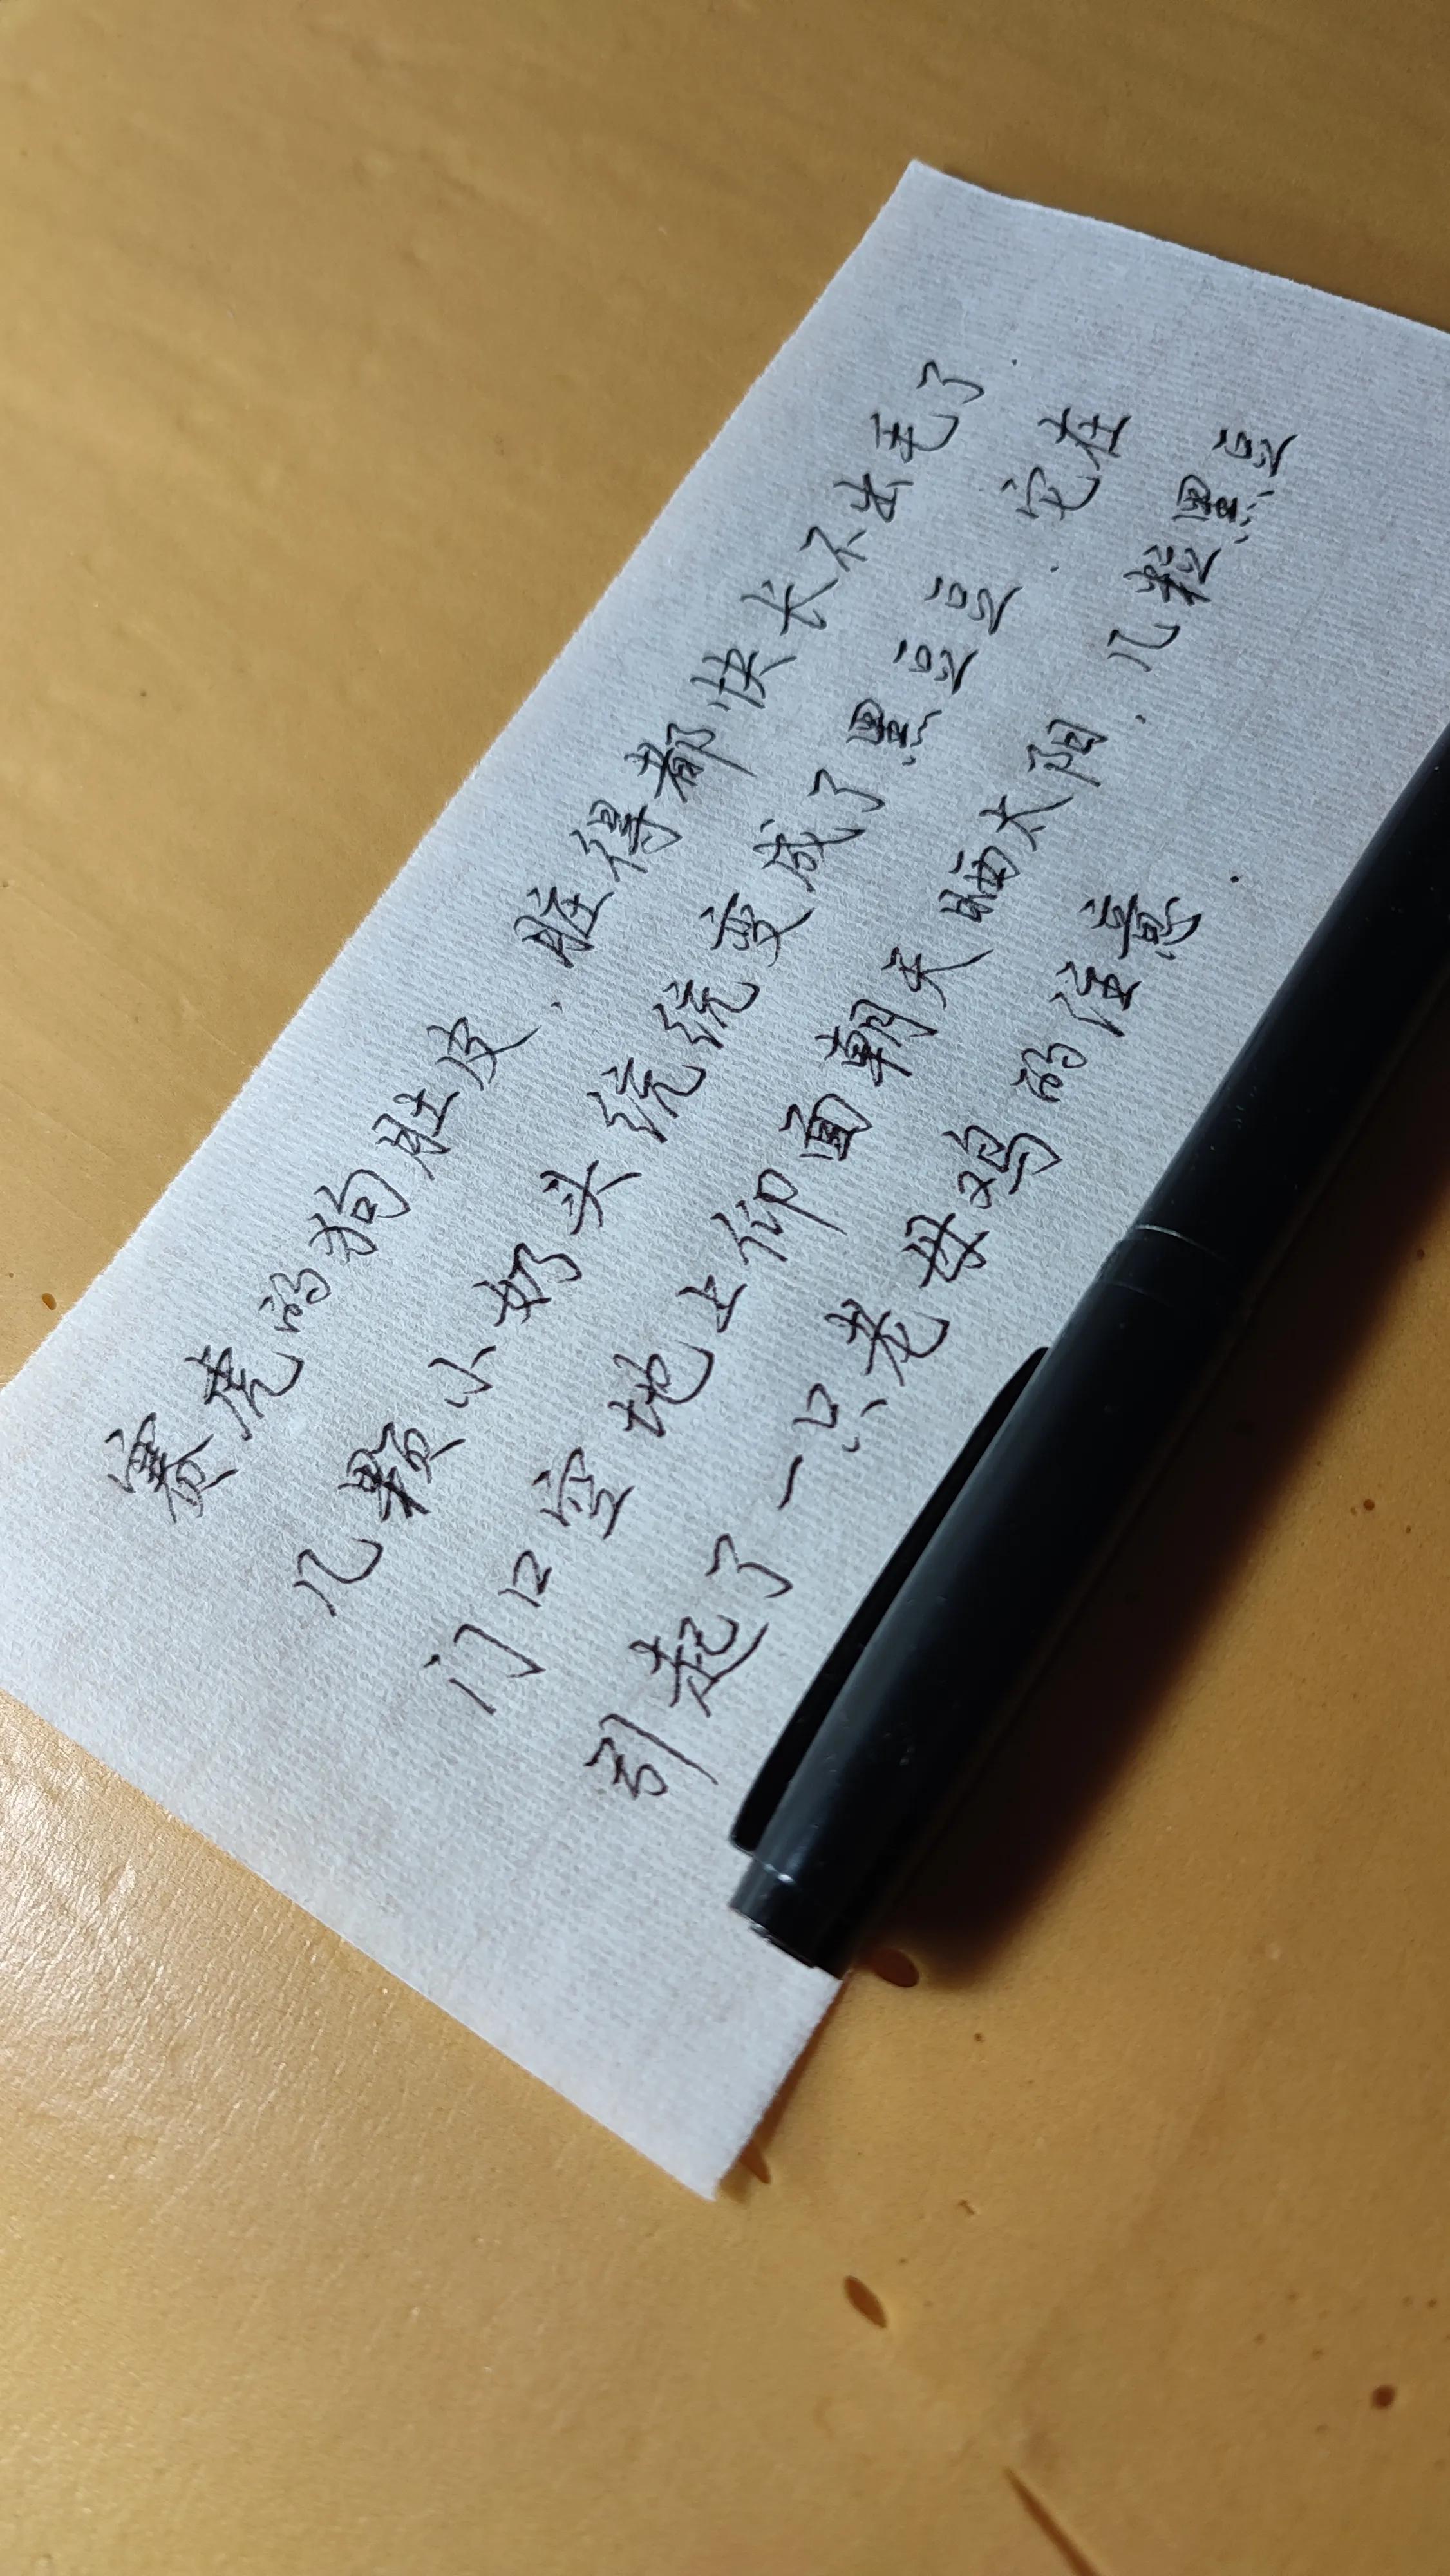 赛虎的狗肚皮，脏得都快长不出毛了.
几颗小奶头统统变成了黑豆豆.它在
门口空地上仰面朝天晒太阳.几粒黑豆
引起了一只老母鸡的注意.